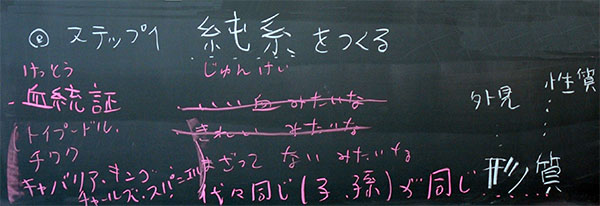 ◎ ステップ1 純系をつくる
けっとう じゅんけい
血統証 いい血 みたいな
トイプードル、 きれい みたいな
チワワ まざって ない みたいな
キャバリア・キング・チャールズ・スパニエル 代々同じ(子、孫)が同じ
外見 性質
形質